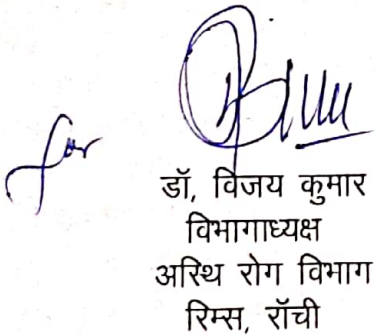 for
डॉ, विजय कुमार
विभागाध्यक्ष
अस्थि रोग विभाग
रिम्स, रॉची